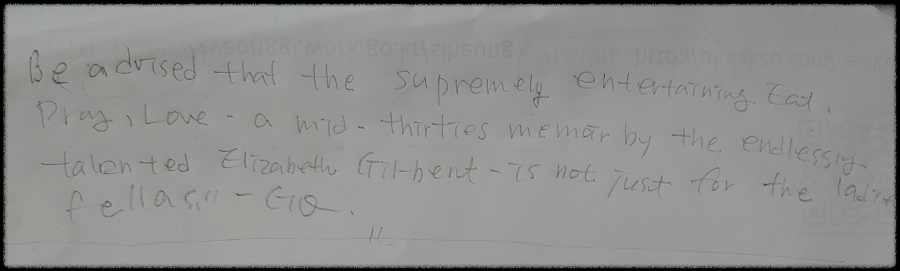 Be advised that the supremely entertaining Eat,
Pray, Love - a mid-thirties memoir by the endlessly-
talented Elizabeth Gil-bert - is not just for the
fellas," - GQ.
"